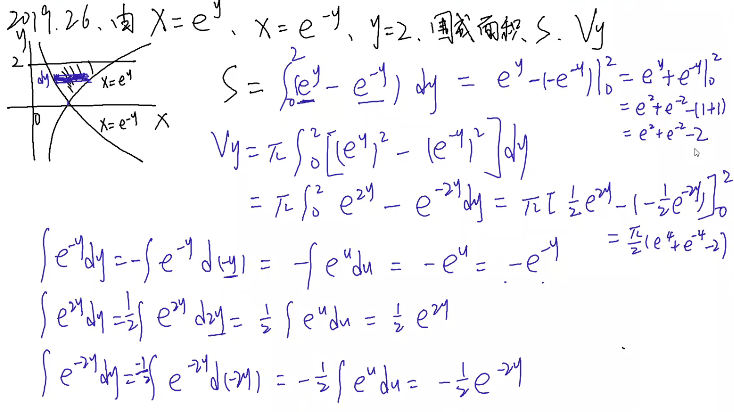 2019.26.由 x=e^y、x=e^-y、y=2.围成面积.S.Vy
y
2
dy
x=e^y
0
x=e^-y
x
S=∫_0^2(e^y-e^-y)dy=e^y-(-e^-y)|_0^2=e^y+e^-y|_0^2
=e^2+e^-2-(1+1)
=e^2+e^-2-2
Vy=π∫_0^2[(e^y)^2-(e^-y)^2]dy
=π∫_0^2 e^2y-e^-2y dy=π[½e^2y-(-½e^-2y)]_0^2
=π/2(e^4+e^-4-2)
∫e^-y dy=-∫e^-y d(-y)=-∫e^u du=-e^u=-e^-y
∫e^2y dy=½∫e^2y d2y=½∫e^u du=½e^2y
∫e^-2y dy=-½∫e^-2y d(-2y)=-½∫e^u du=-½e^-2y